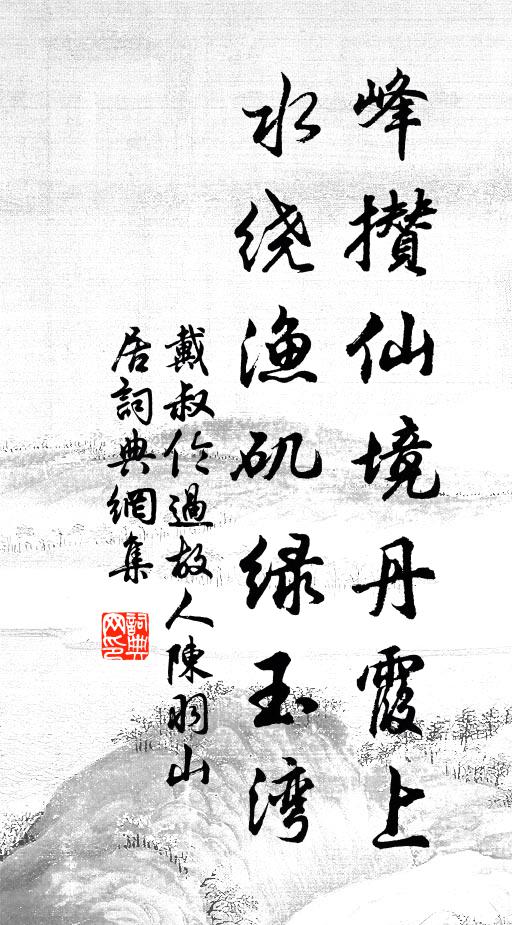 峰攅仙境丹霞上
水绕渔矶绿玉湾
戴叔伦過故人陳羽山
居詞典網集
詞典
网印